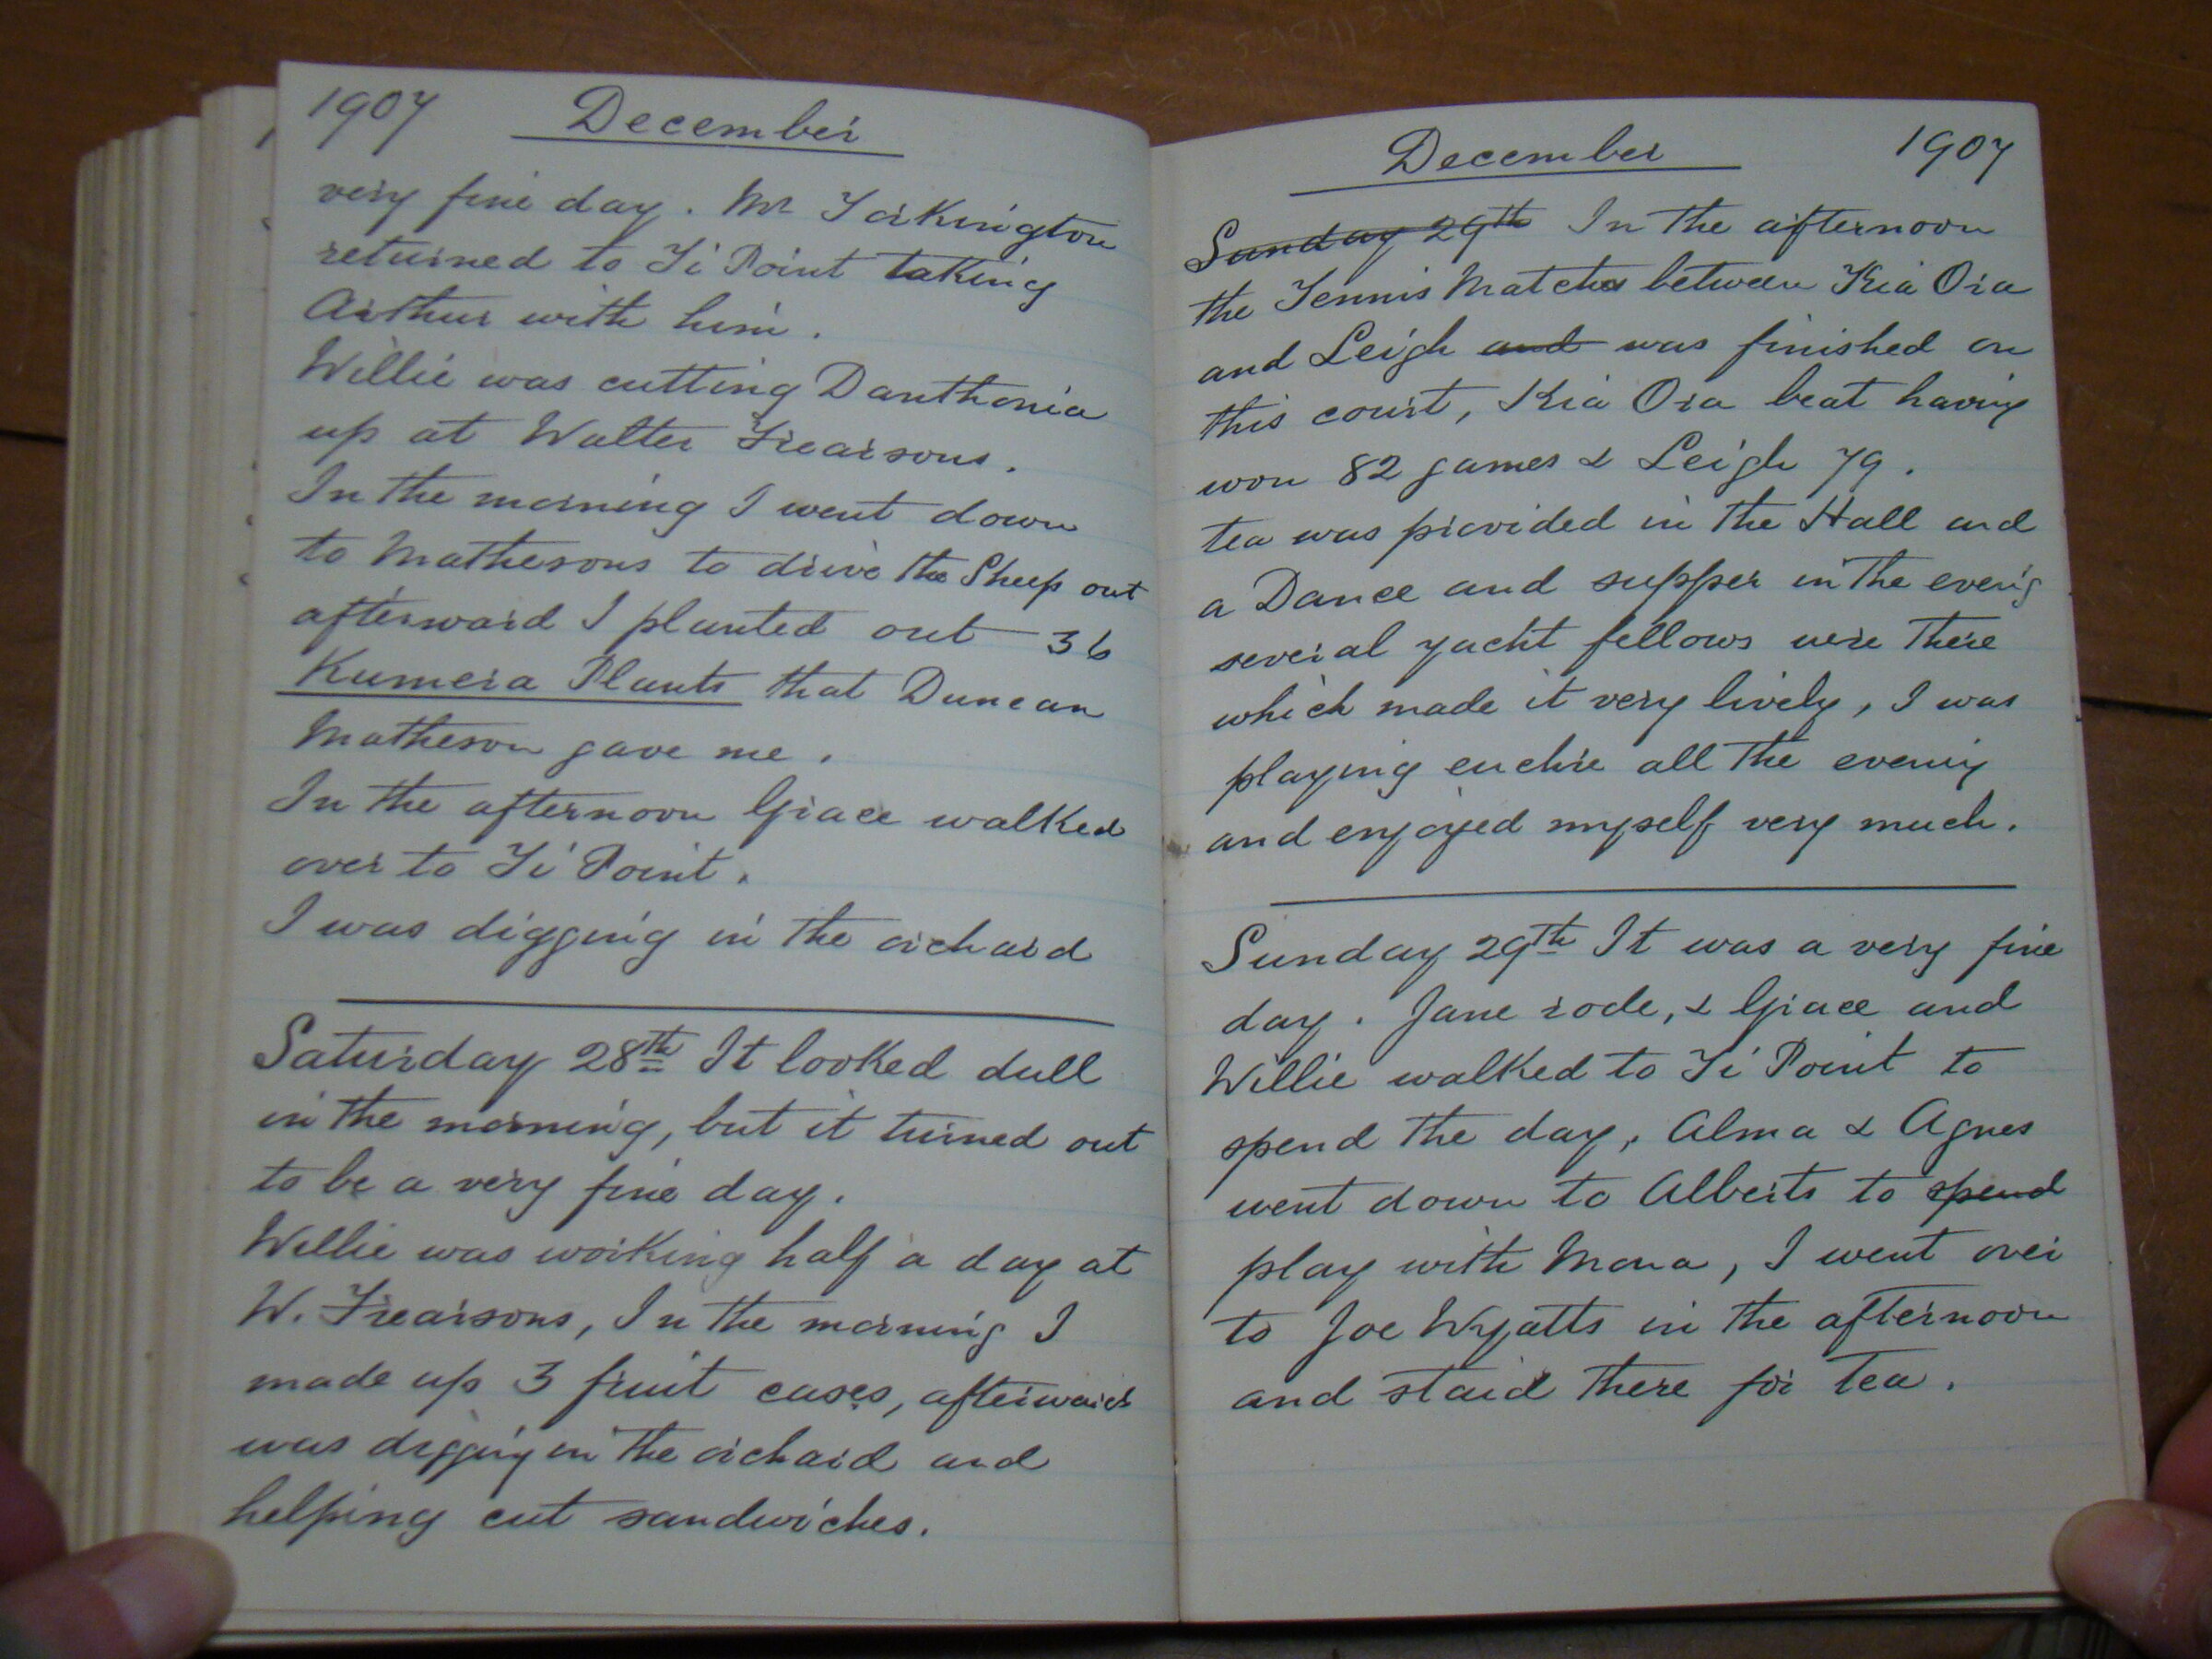 1907 December
very fine day. Mr Torkington
returned to Ti Point taking
Arthur with him.
Willie was cutting Danthonia
up at Walter Frearsons.
In the morning I went down
to Mathesons to drive the Sheep out
afterward I planted out 36
Kumera Plants that Duncan
Matheson gave me.
In the afternoon Grace walked
over to Ti Point.
I was digging in the orchard
Saturday 28th It looked dull
in the morning, but it turned out
to be a very fine day.
Willie was working half a day at
W. Frearsons, In the morning I
made up 3 fruit cases, afterwards
was digging in the orchard and
helping cut sandwiches.
December 1907
Sunday 29th In the afternoon
the Tennis Match between Kia Ora
and Leigh and was finished on
this court, Kia Ora beat having
won 82 games & Leigh 79.
tea was provided in the Hall and
a Dance and supper in the evenig
several yacht fellows were there
which made it very lively, I was
playing euchre all the evening
and enjoyed myself very much.
Sunday 29th It was a very fine
day. Jane rode, & Grace and
Willie walked to Ti Point to
spend the day, Alma & Agnes
went down to Alberts to spend
play with Mona, I went over
to Joe Wyatts in the afternoon
and staid there for tea.